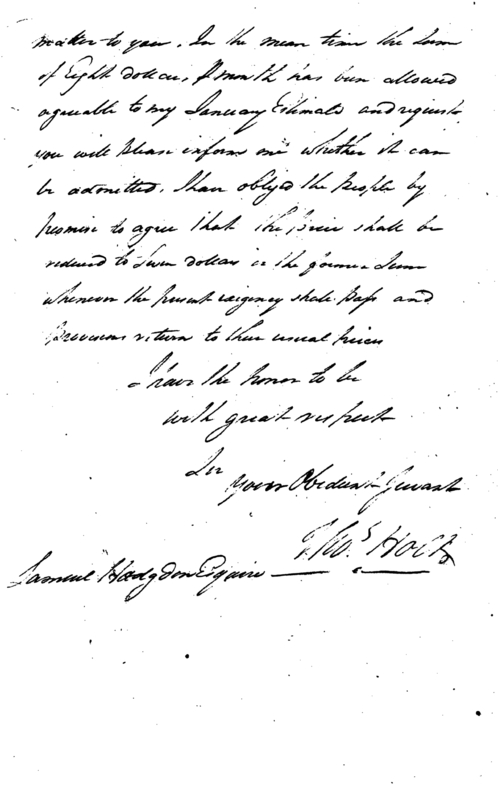 matter to you. In the mean time the Sum
of Eight dollars, ⅌ month has been allowed
agreeable to my January Estimate and request
you will please inform me whether it can
be admitted. I have obliged the People by
promise to agree that the Price shall be
reduced to Seven dollars or the former Sum
whenever the present exigency shall pass and
Provisions return to their usual prices
I have the honor to be
with great respect
Sir
Your Obedient Servant
Thos. Holt
Samuel Hodgdon Esquire